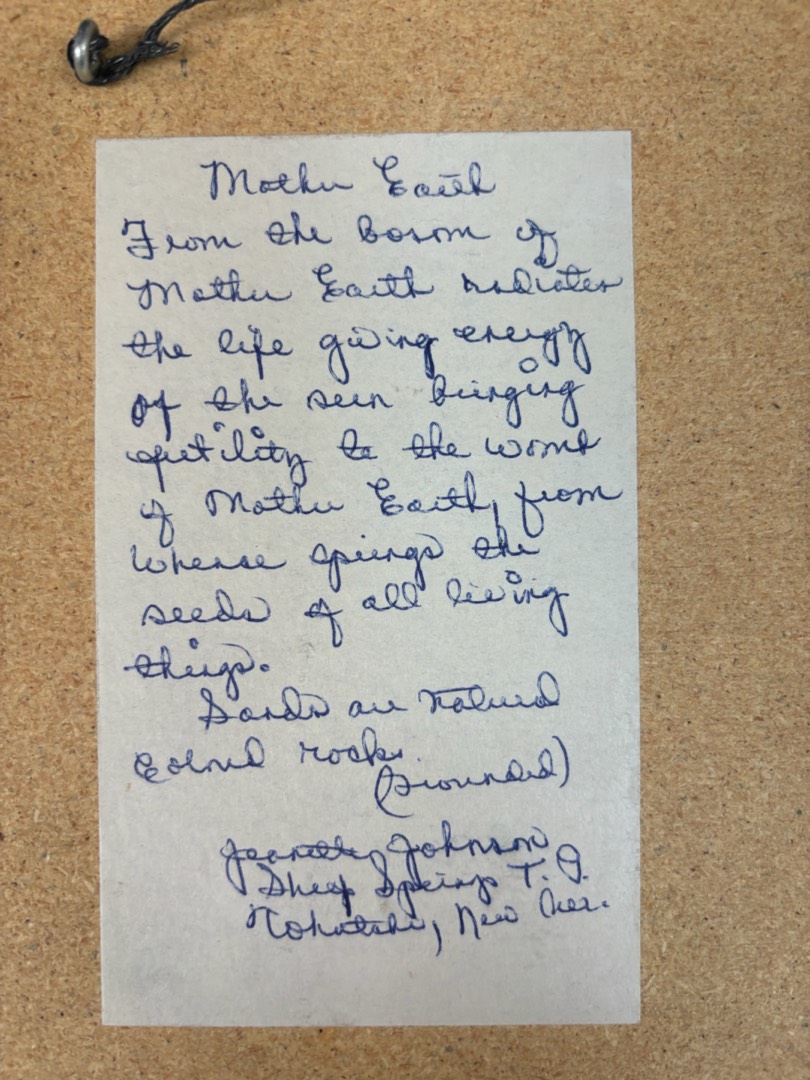 Mother Earth
From the bosom of
Mother Earth radiates
the life giving energy
of the sun bringing
fertility to the womb
of Mother Earth, from
whense springs the
seeds of all living
things.
Sands are natural
colored rock.
(Grounded)
Jeanette Johnson
Sheep Springs T. P.
Tohatchi, New Mex.